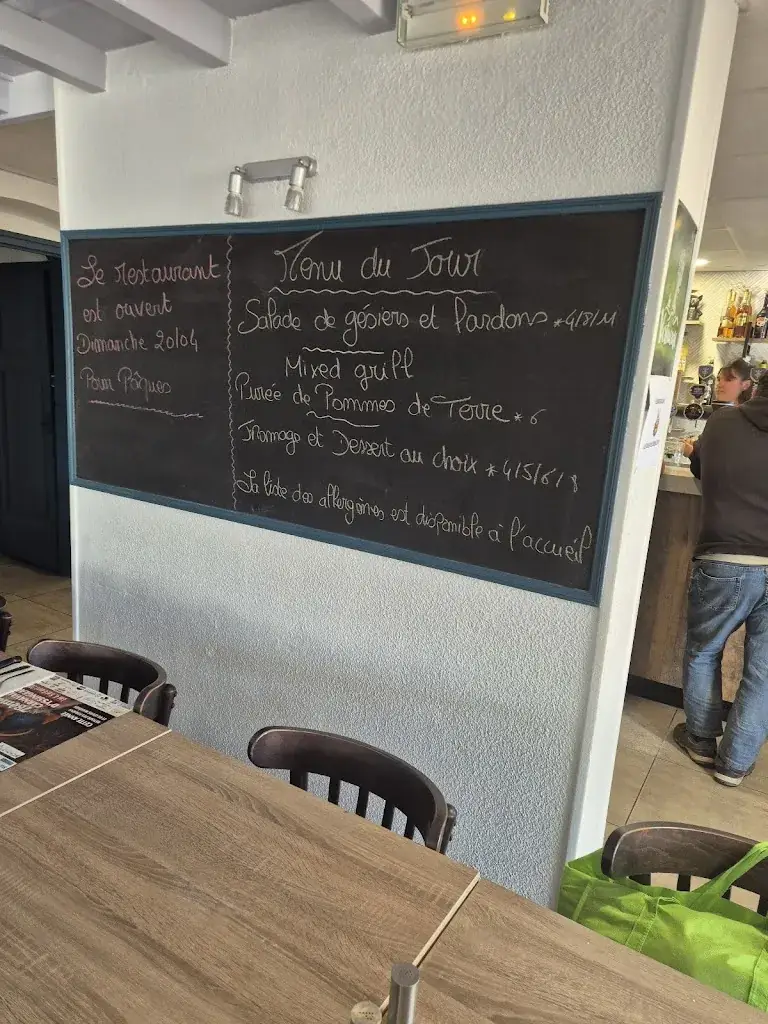 Le restaurant
est ouvert
Dimanche 20/04
Pour Pâques
Menu du Jour
Salade de gésiers et lardons *4/8/11
Mixed grill
Purée de Pommes de Terre *6
Fromage et Dessert au choix *4/5/6/8
La liste des allergènes est disponible à l'accueil